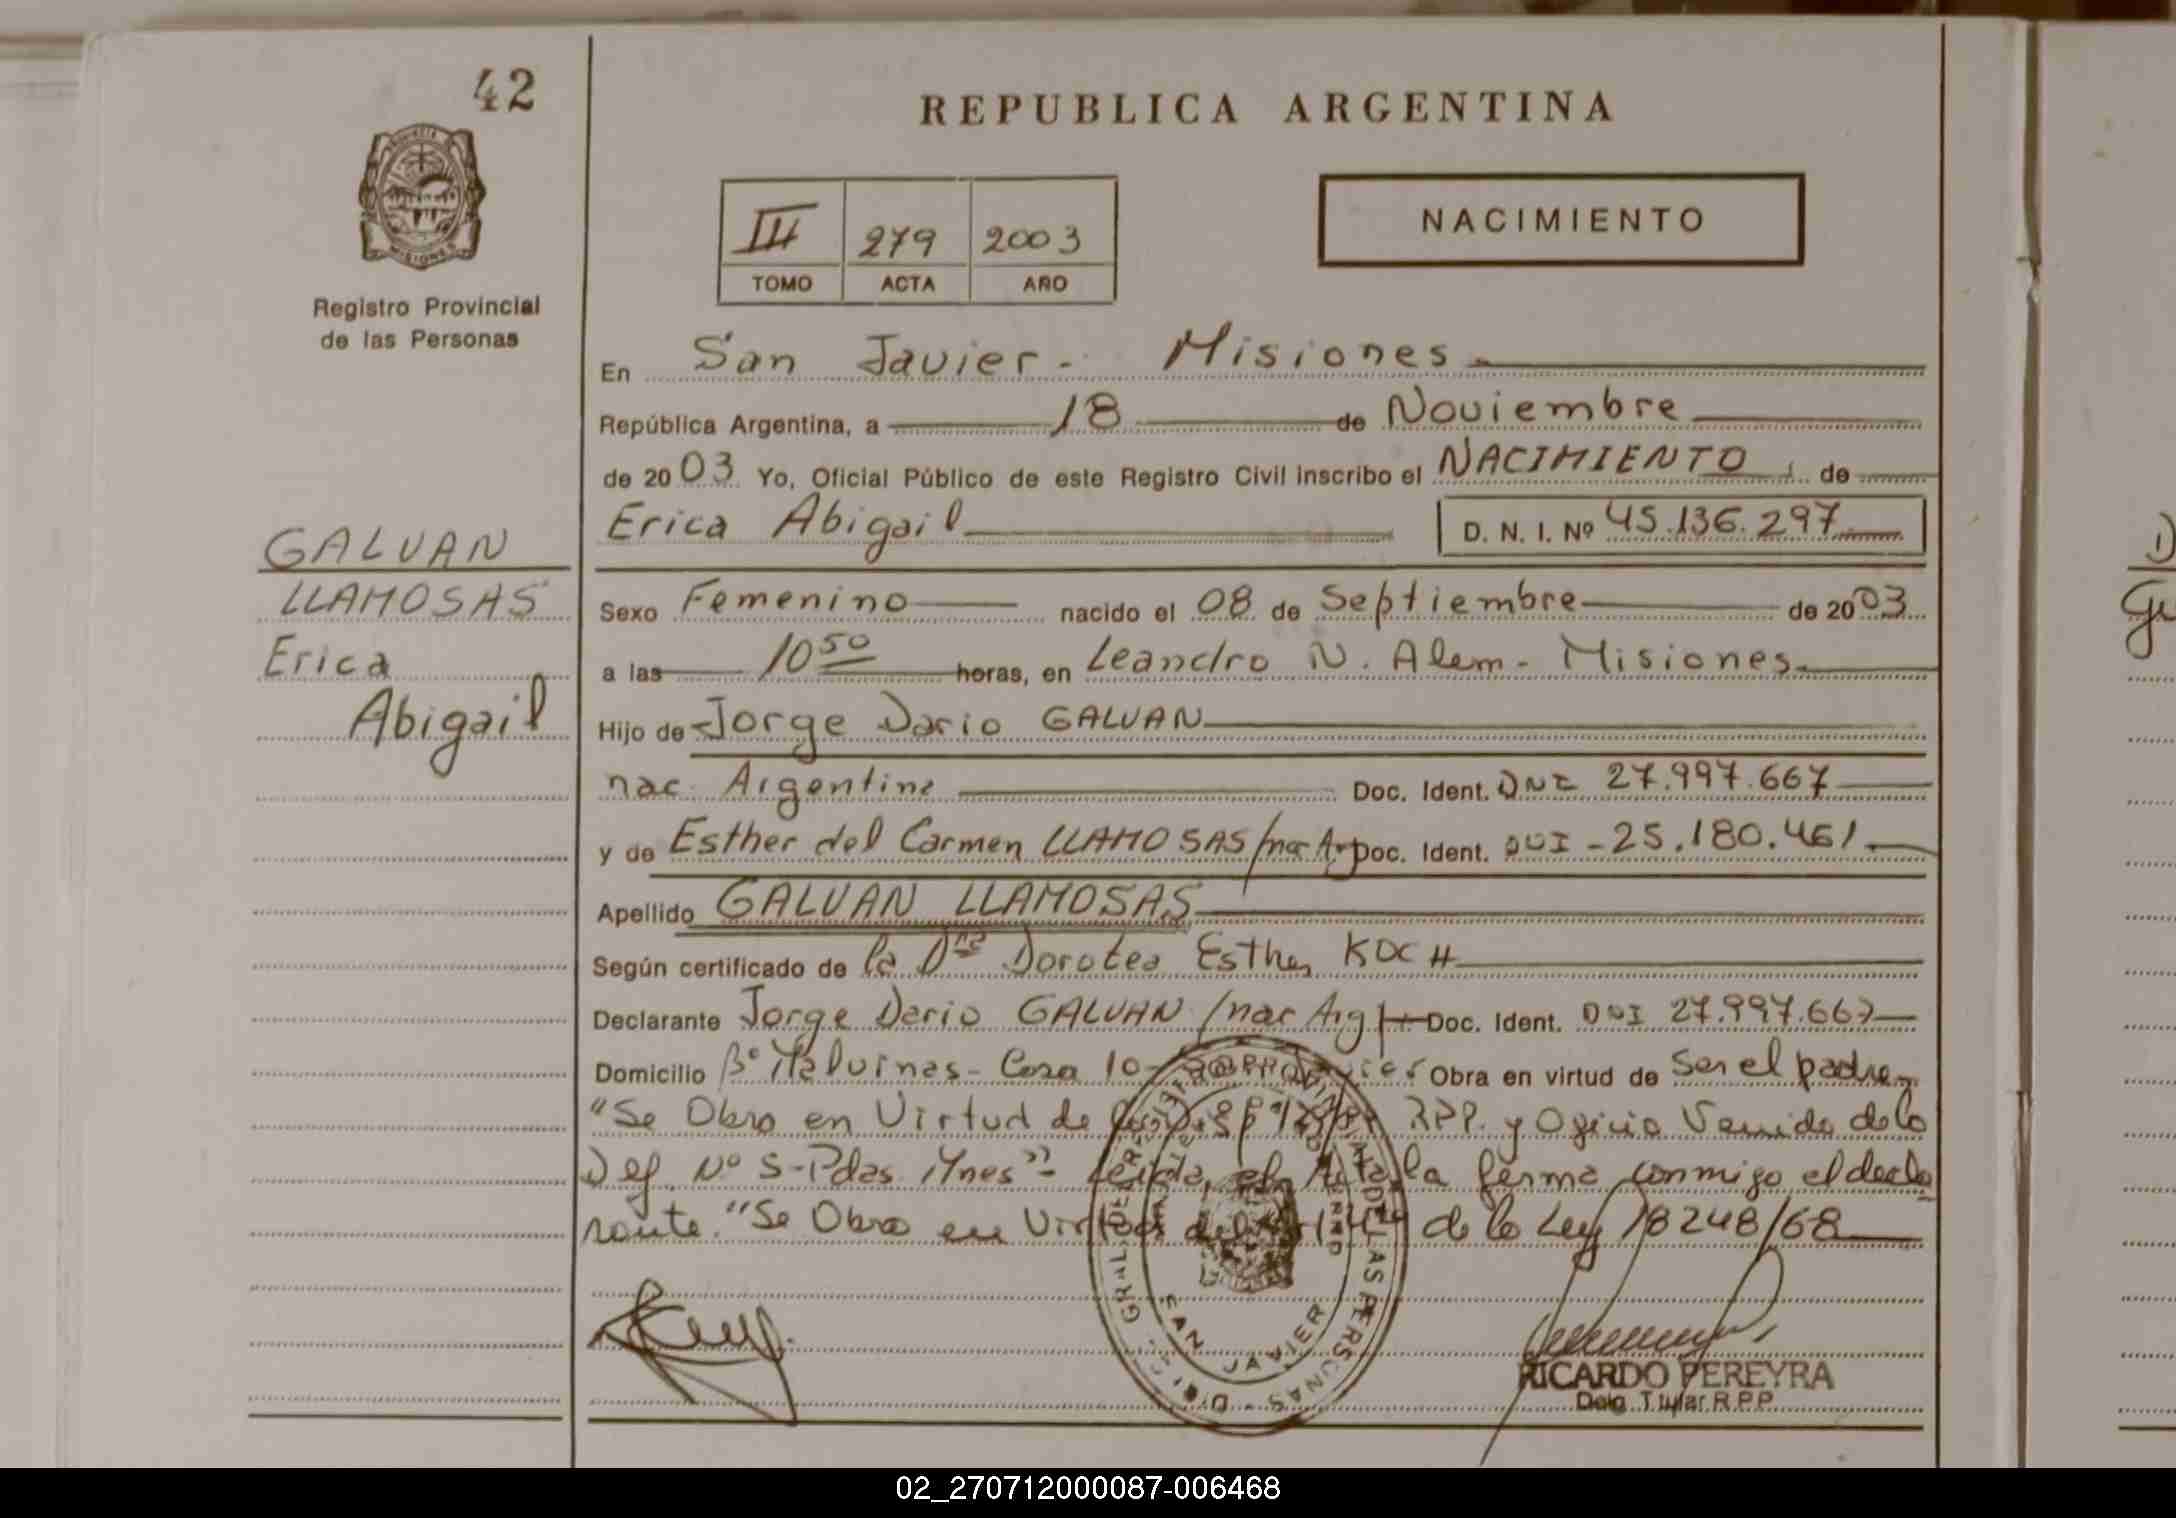 42
REPUBLICA ARGENTINA
PROVINCIA
MISIONES
Registro Provincial
de las Personas
III 279 2003
TOMO ACTA AÑO
NACIMIENTO
En San Javier - Misiones
República Argentina, a 18 de Noviembre
de 2003 Yo, Oficial Público de este Registro Civil inscribo el NACIMIENTO de
Erica Abigail D. N. I. Nº 45.136.297
GALVAN
LLAMOSAS
Erica
Abigail
Sexo Femenino nacido el 08 de Septiembre de 2003
a las 10 50 horas, en Leandro N. Alem - Misiones
Hijo de Jorge Dario GALVAN
nac. Argentina Doc. Ident. DNI 27.997.667
y de Esther del Carmen LLAMOSAS /nac Arg Doc. Ident. DNI - 25.180.461
Apellido GALVAN LLAMOSAS
Según certificado de la Dra Dorotea Esther KOCH
Declarante Jorge Dario GALVAN /nac Arg/ Doc. Ident. DNI 27.997.667
Domicilio Bº Malvinas - Casa 10 - Obra en virtud de ser el padre
"Se Obra en Virtud de RPP. y Oficio Venido de la
Def. Nº 5 - Pdas. Mnes" - Leida, el Acta, la firma conmigo el decla
rante. "Se Obra en Virtud del Art 4º de la Ley 18248/68
SAN JAVIER
RICARDO PEREYRA
Deleg. Titular R.P.P
02_270712000087-006468